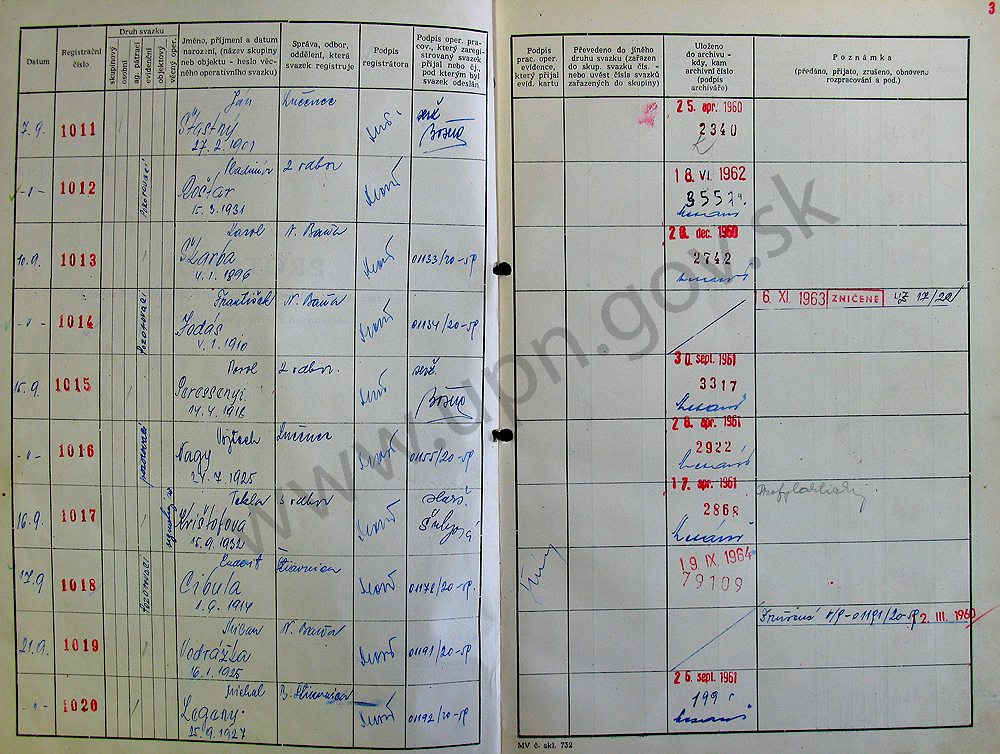 3
Datum
Registrační číslo
Druh svazku
skupinový
osobní
ag. pátrací
evidenční
objektový
věcný oper.
Jméno, příjmení a datum
narození, (název skupiny
neb objektu - heslo věc-
ného operativního svazku)
Správa, odbor,
oddělení, která
svazek registruje
Podpis
registrátora
Podpis oper. pra-
cov., který zaregi-
stroval svazek
přijal nebo čj.
pod kterým byl
svazek odeslán
Podpis
prac. oper.
evidence,
který přijal
evid. kartu
Převedeno do jiného
druhu svazku (zařazen
do skup. svazku čís. -
nebo uvést čísla svazků
zařazených do skupiny)
Uloženo
do archivu -
kdy, kam
archivní číslo
(podpis
archiváře)
Poznámka
(předáno, přijato, zrušeno, obnoveno
rozpracování a pod.)
7.9. 1011 Ján Lučenec
Šťastný
27.2.1901
25. apr. 1960
2340
-"- 1012 Vladimír 2 odbor
Boštár
15.3.1931
18. VI. 1962
3552
10.9. 1013 Karol N. Baňa
Škarba 01133/20-sp
4.1.1896
28. dec. 1960
2742
-"- 1014 František N. Baňa
01134/20-sp
4.1.1910
6. XI. 1963 ZNIČENÉ
15.9. 1015 2 odbor.
14.4.1918
30. sept. 1961
3317
-"- 1016 Vojtech Lučenec
Nagy 01155/20-sp
24.7.1925
28. apr. 1961
2922
16.9. 1017 Tekla 3 odbor
Krištofová
15.9.1932
17. apr. 1961
2868
17.9 1018 Ľudovít Štiavnica
Cibula 01172/20-sp.
1.9.1914
19. IX. 1964
79109
21.9. 1019 Milan N. Baňa
Vodrážka 01191/20-sp.
16.1.1925
01191/20-sp 2. III. 1960
-"- 1020 Michal B. Štiavnica
Legany 01192/20-sp.
25.9.1927
26. sept. 1961
199
MV č. skl. 732
www.upn.gov.sk